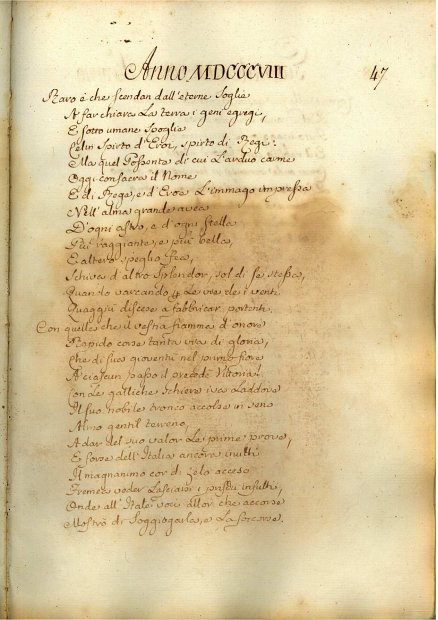 Anno MDCCCVIII
47
Raro è che scendan dall'eterne soglie
A far chiara la terra i geni egregi,
E sotto umane spoglie
Celin spirto d'Eroi, spirto di Regi:
Ma quel Possente di cui l'arduo carme
Oggi consacra il Nome
E di Rege, e d'Eroe l'immago impressa
Nell'alma grande avea
D'ogni astro, e d'ogni stella
Più raggiante, e più bella,
E altero speglio fea,
Schiva d'altro splendor, sol di se stessa,
Quando varcando le vie de i venti
Quaggiù discese a fabbricar portenti.
Con quelle che il vostra fiamma d'onore
Rapido corse tanta via di gloria,
Che di sua gioventù nel primo fiore
A ciascun passo il precedè Vittoria:
Con le galliche schiere iva laddove
Il suo nobile tronco accolse in seno
Almo gentil terreno,
A dar del suo valor le prime prove,
E forse dell'Italia ancora inulti
Il magnanimo cor di zelo acceso
Fremea veder lasciarsi i prischi insulti,
Onde all'Itale voci allor che accorse
Mostrò di soggiogarla, e la soccorse.